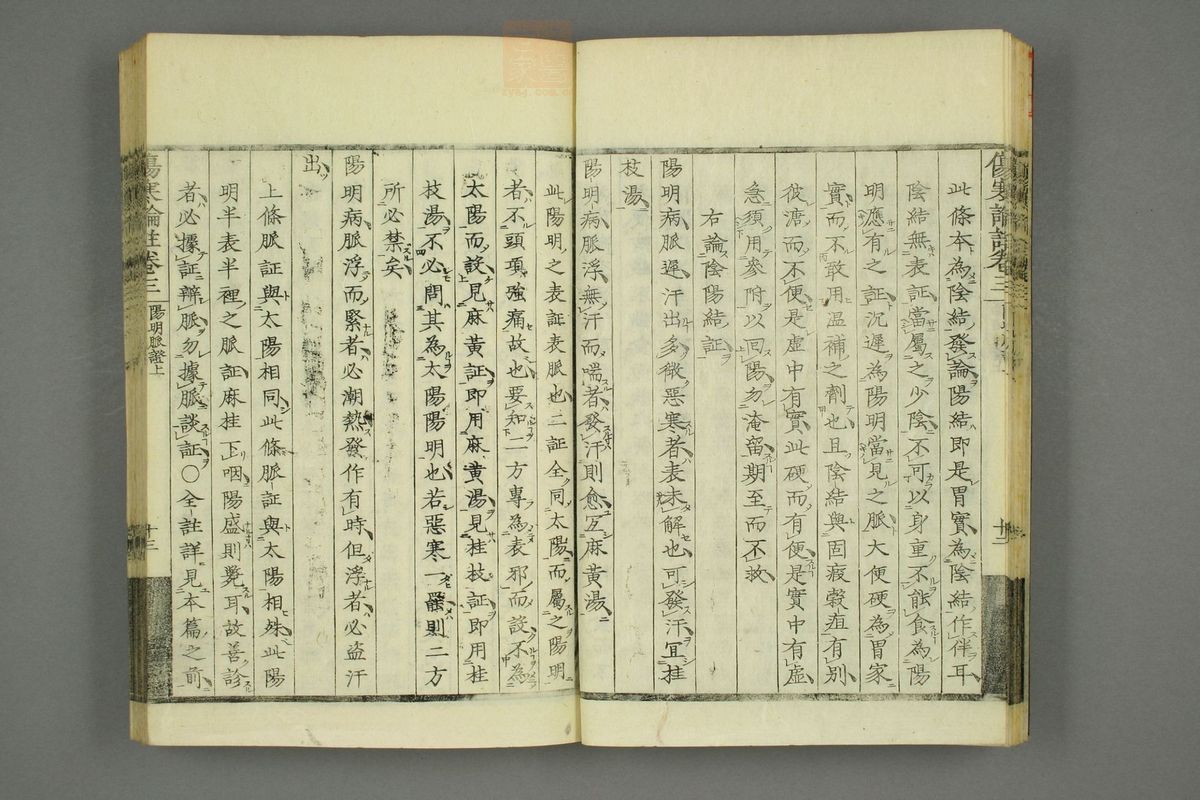 此條本為陰結發論陽結即是胃實為陰結作伴耳
陰結無表証當屬之少陰不可以身重不能食為陽
明應有之証沉遲為陽明當見之脉大便硬為胃家
實而不敢用温補之劑也且陰結與固瘕穀疸有別
彼溏而不便是虛中有實此硬而有便是實中有虛
急須用參附以回陽勿淹留期至而不救
右論陰陽結証
陽明病脈遲汗出多微惡寒者表未解也可發汗宜桂
枝湯
陽明病脈浮無汗而喘者發汗則愈宜麻黄湯
此陽明之表証表脉也二証全同太陽而屬之陽明
者不頭項強痛故也要知二方專為表邪而設不為
太陽而設見麻黄証即用麻黄湯見桂枝証即用桂
枝湯不必問其為太陽陽明也若惡寒一罷則二方
所必禁矣
陽明病脈浮而緊者必潮熱發作有時但浮者必盗汗
出
上條脈証與太陽相同此條脈証與太陽相殊此陽
明半表半裡之脈証麻桂下咽陽盛則斃耳故善診
者必據証辨脈勿據脈談証○全註詳見本篇之前
傷寒論註卷三
陽明脈證上
十三